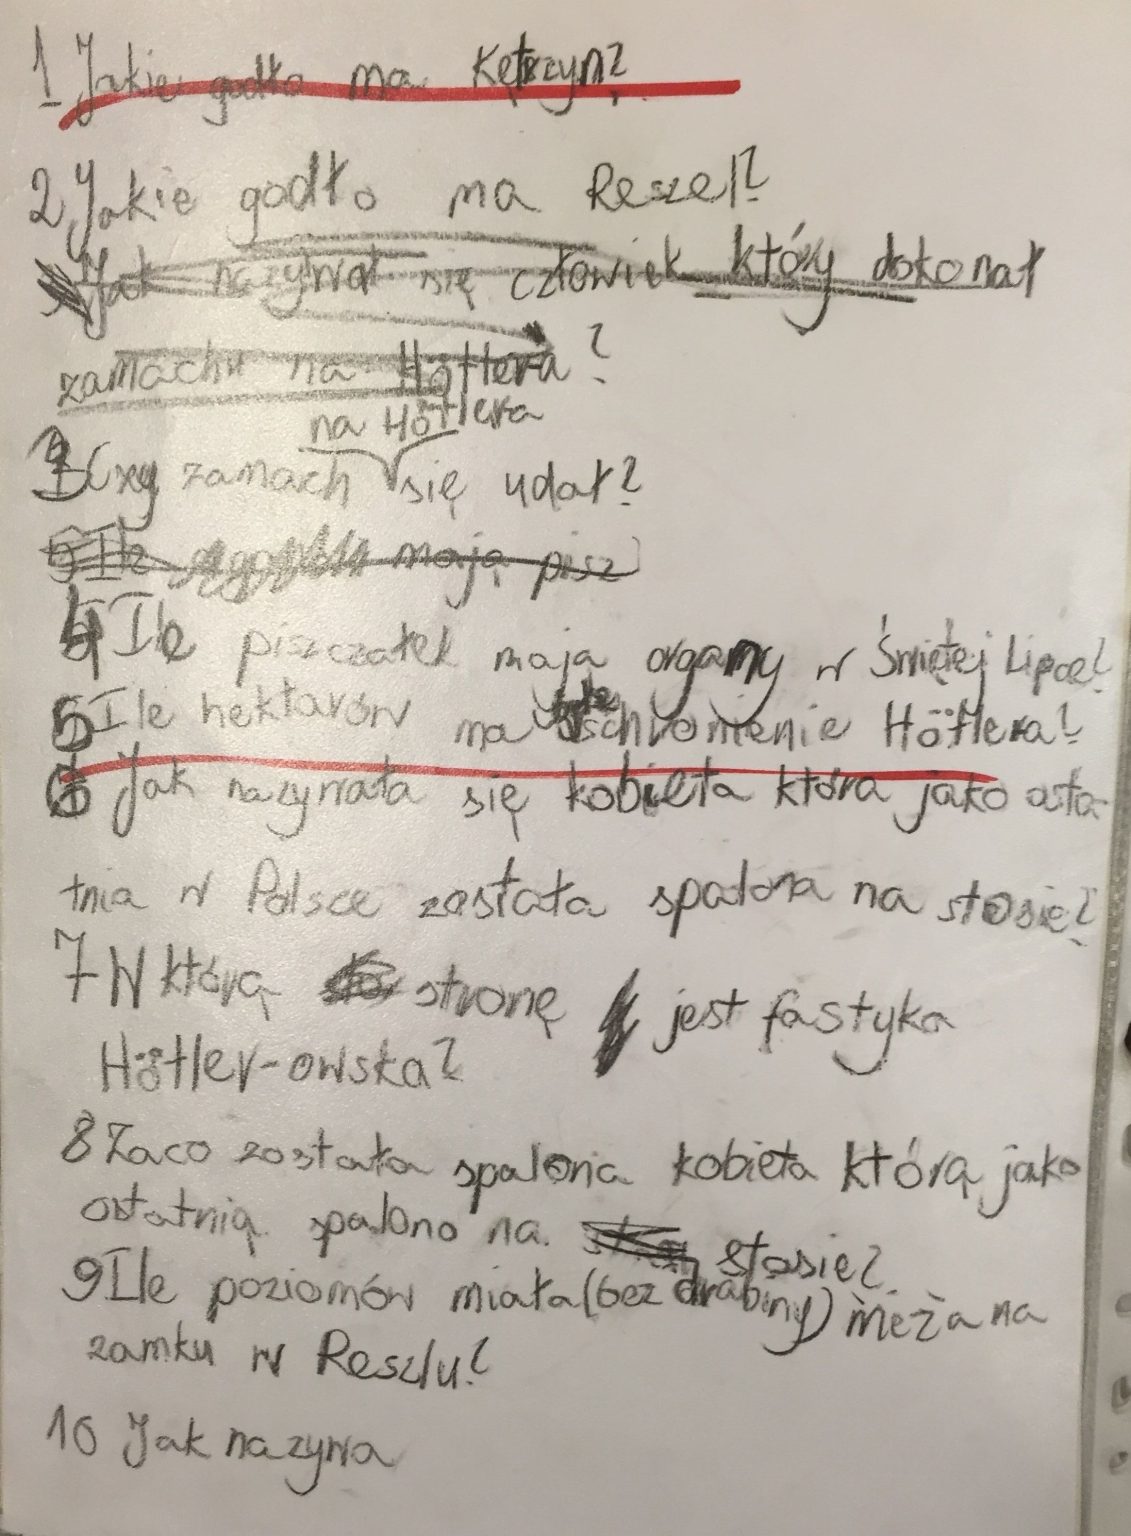 1 Jakie godło ma Kętrzyn?
2 Jakie godło ma Reszel?
Jak nazywał się człowiek który dokonał
zamachu na Hötlera?
na Hötlera
3 Czy zamach się udał?
5 Ile mają pisz
4 Ile piszczałek mają organy w Świętej Lipce?
5 Ile hektarów ma schronienie Hötlera?
6 Jak nazywała się kobieta która jako osta-
tnia w Polsce została spalona na stosie?
7 W którą stronę jest fastyka
Hötler-owska?
8 Zaco została spalona kobieta którą jako
ostatnią spalono na stosie?
9 Ile poziomów miała (bez drabiny) mieża na
zamku w Reszlu?
10 Jak nazywa